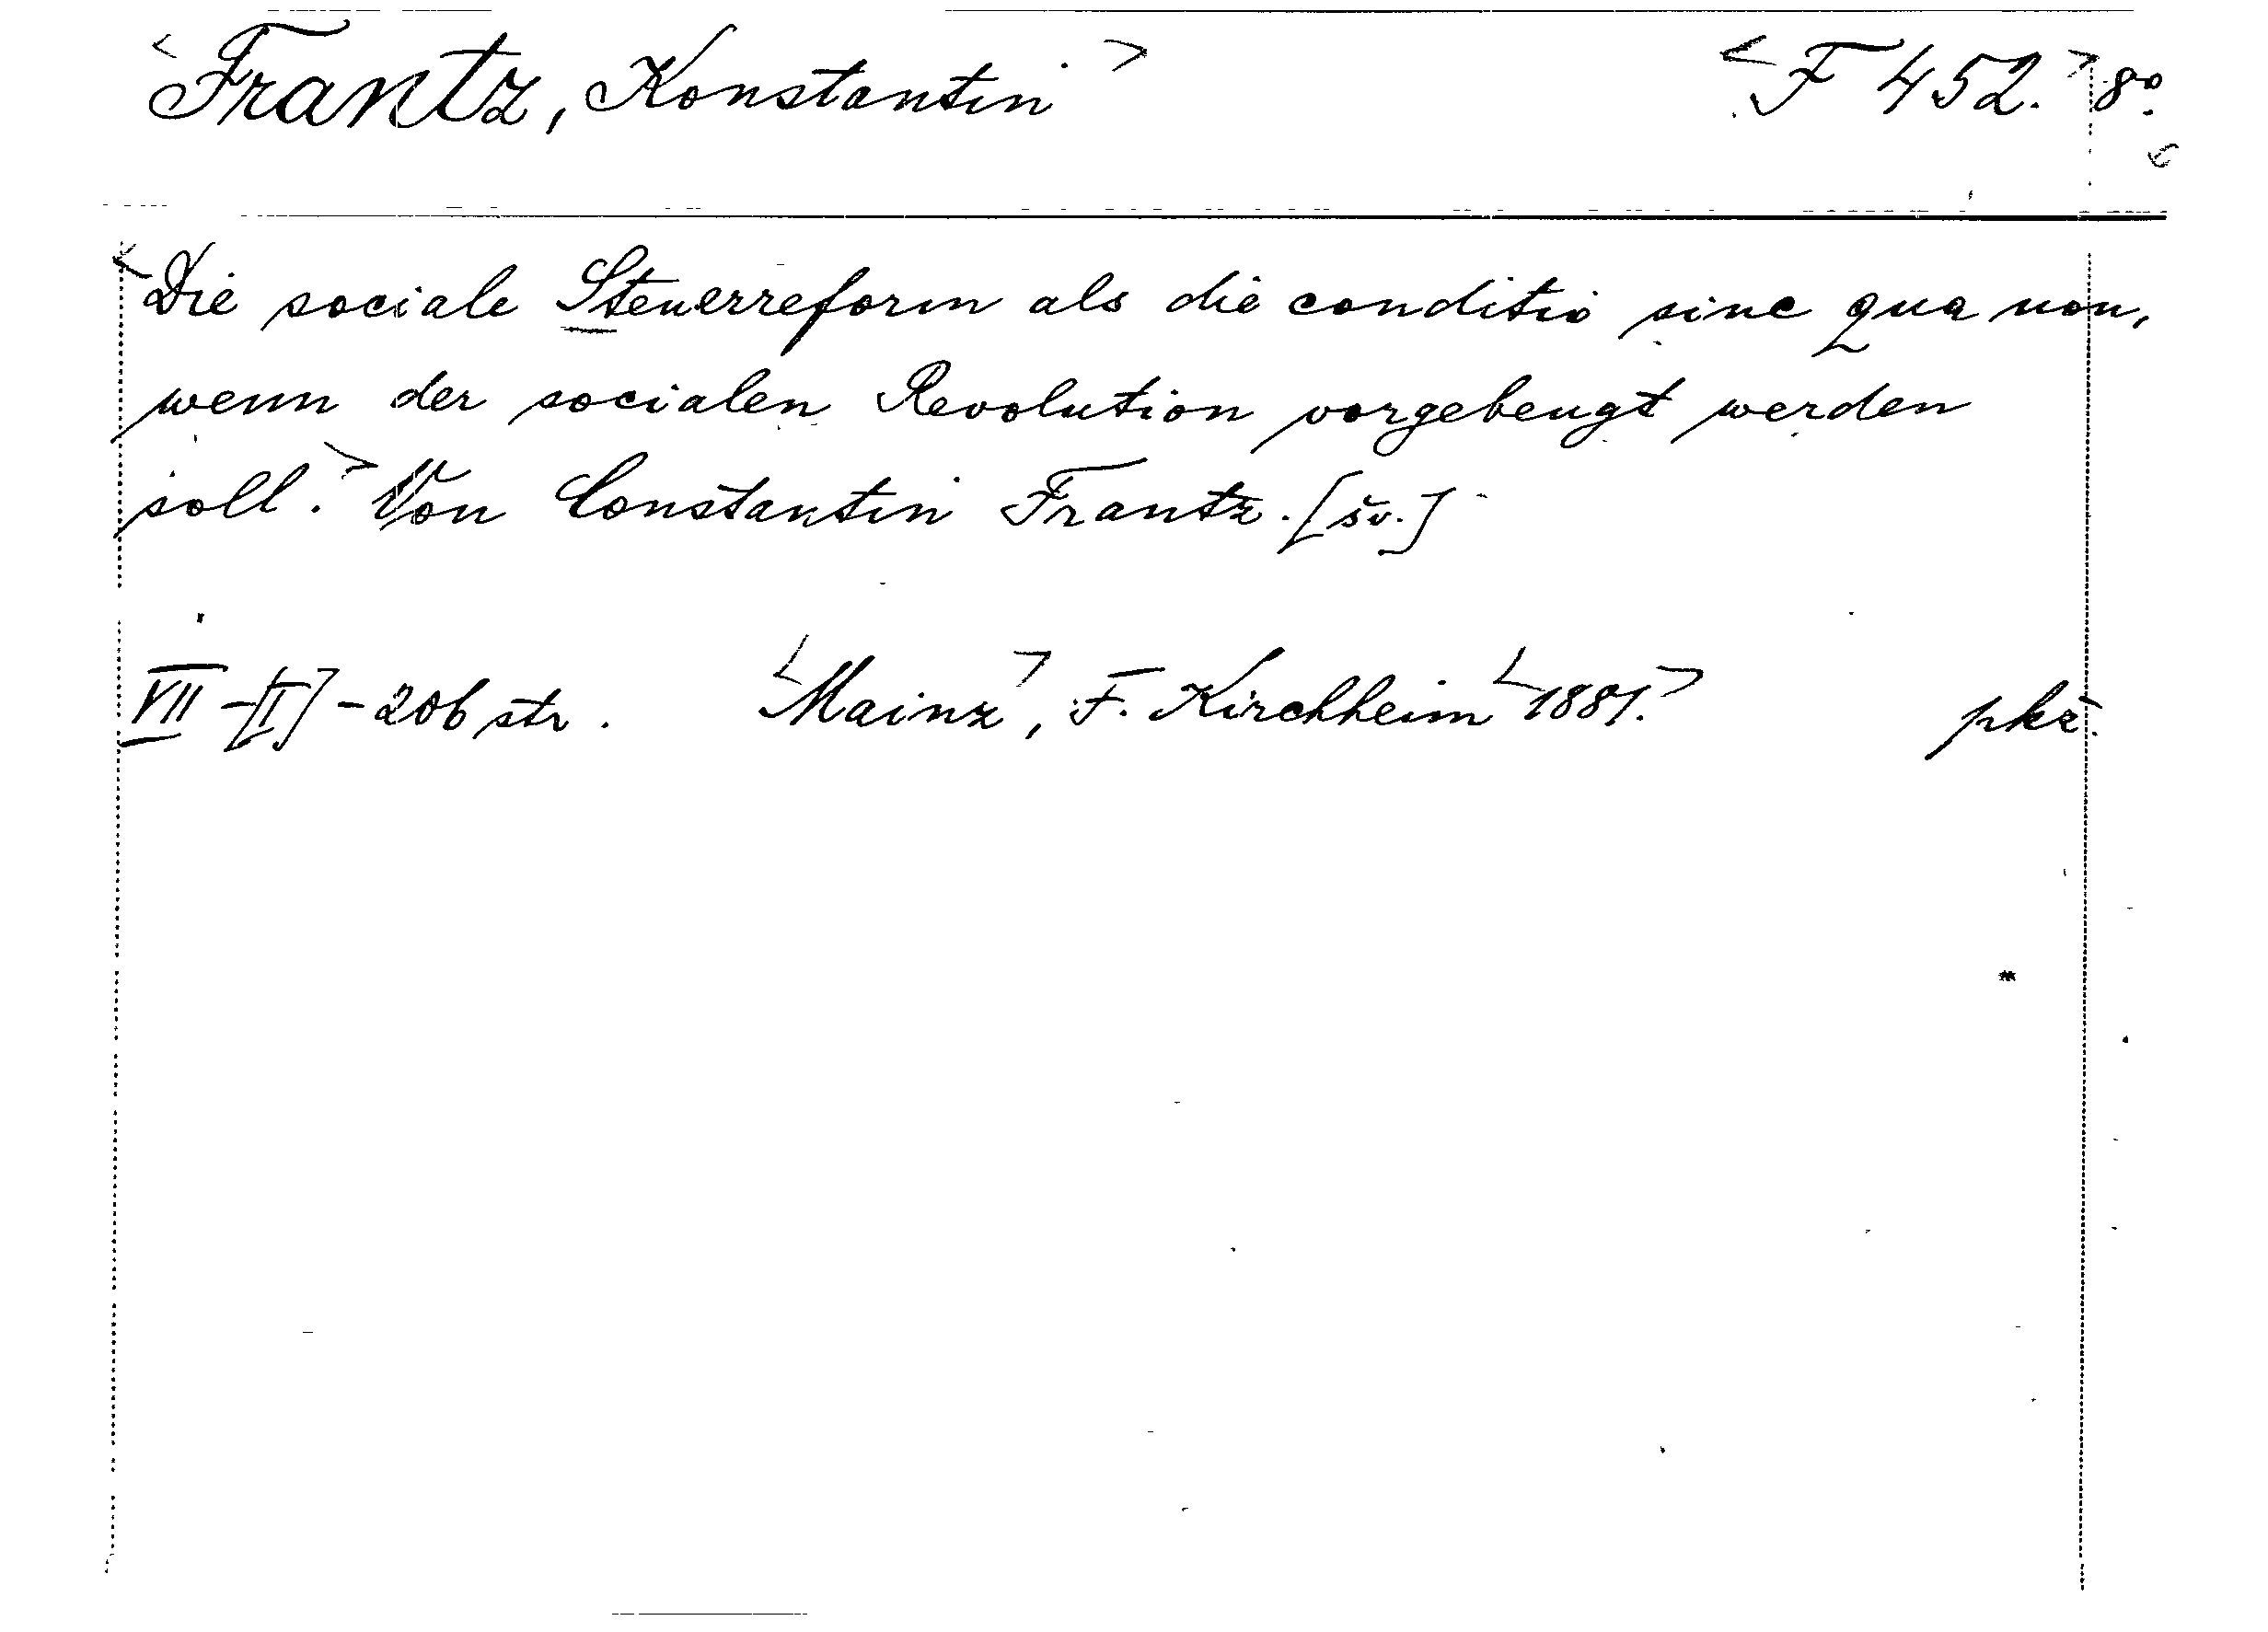 <Frantz, Konstantin> <F 452.> 8º.
<Die sociale Steuerreform als die conditio sine qua non,
wenn der socialen Revolution vorgebeugt werden
soll.> Von Constantin Frantz. [šv.]
VII-[I]-206 str. <Mainz>, F. Kirchheim <1881.> pkž.